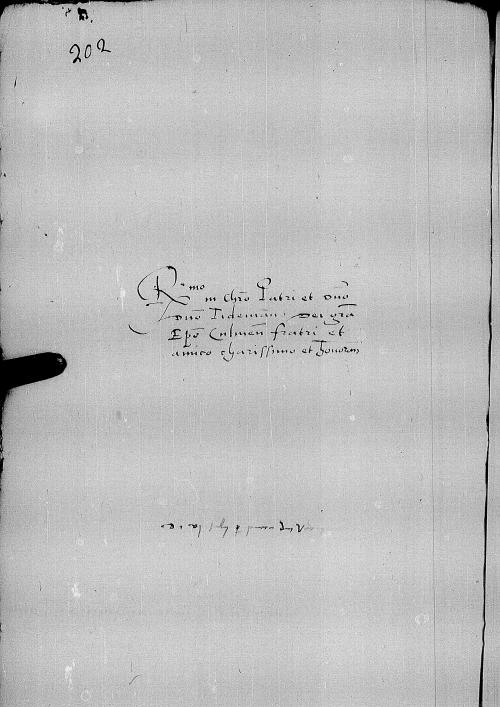 202
R.mo in Chro Patri et Dno
Dno Tideman. Dei gra
Epo Culmen fratri et
amico charissimo et honoran